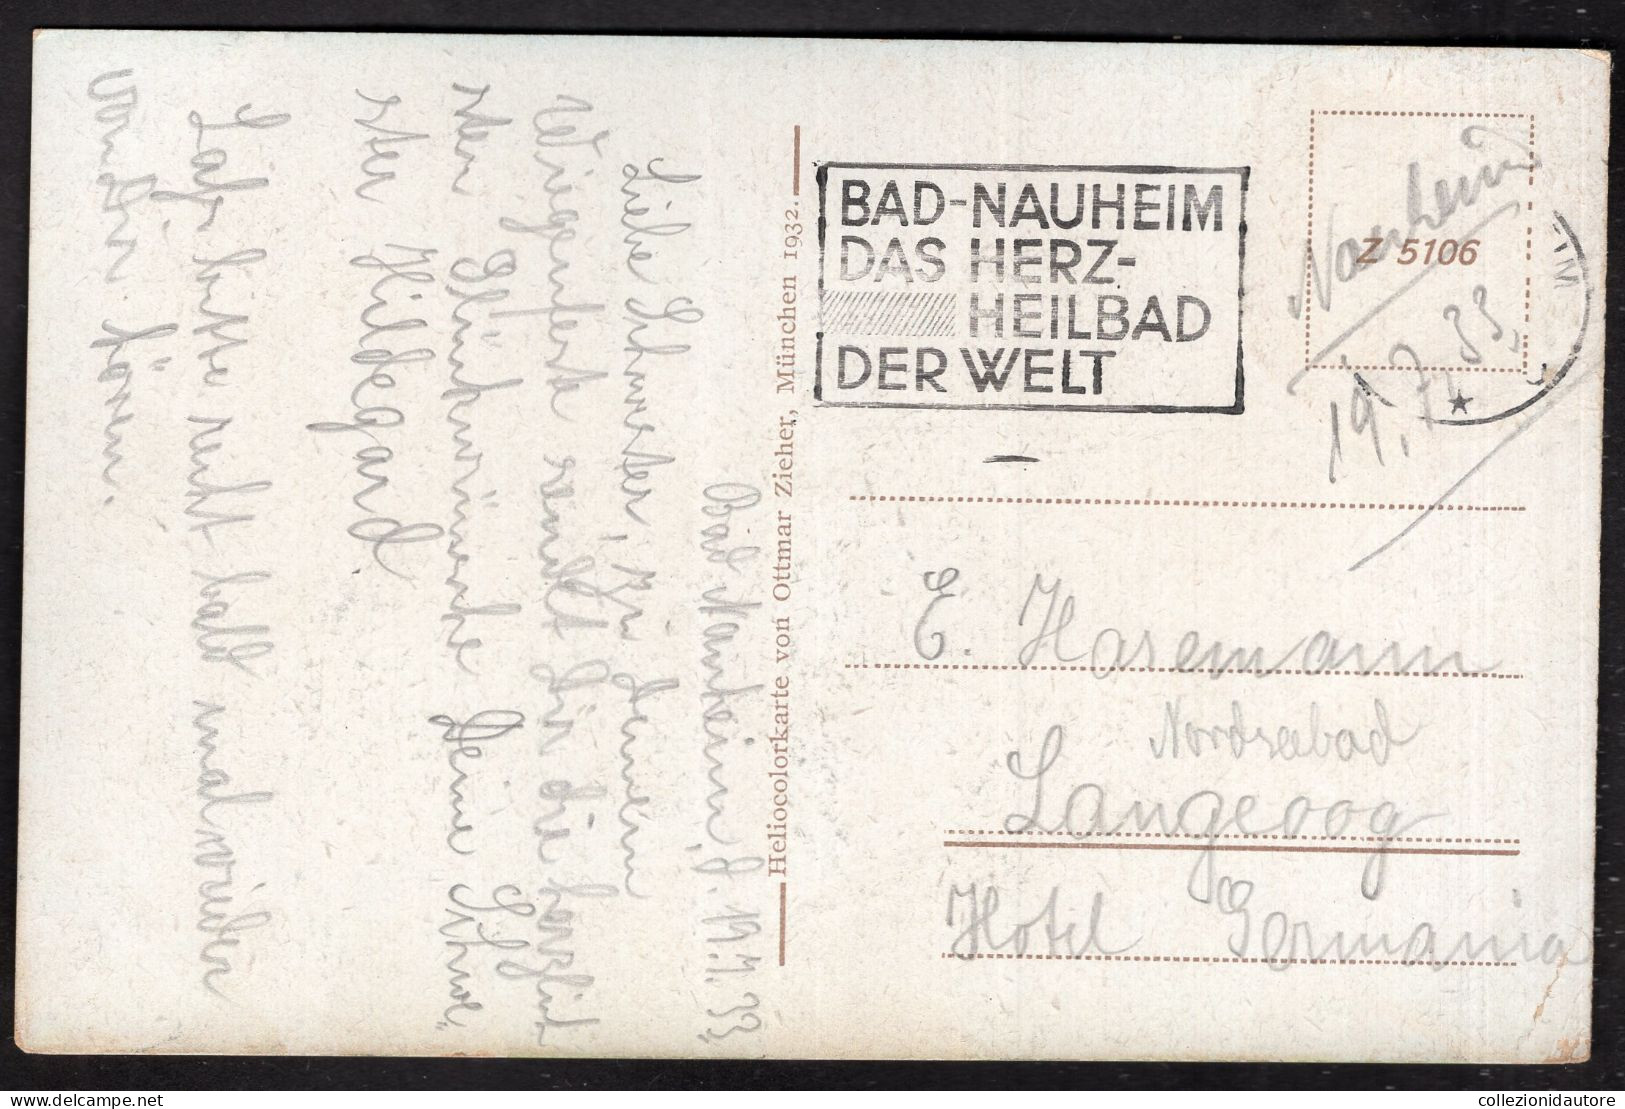 Bad Nauheim, d. 19.7.33.
Liebe Schwester, Zu deinem
Wiegenfest sendt Dir die herzlich
sten Glückwünsche Deine Schwe-
ster Hildegard
Laß bitte recht bald mal wieder
von Dir hören.
Heliocolorkarte von Ottmar Zieher, München 1932.
BAD-NAUHEIM
DAS HERZ-
HEILBAD
DER WELT
Z 5106
Nauheim
19.7.33
E. Hasemann
Nordseebad
Langeoog
Hotel Germania
collezionidautore